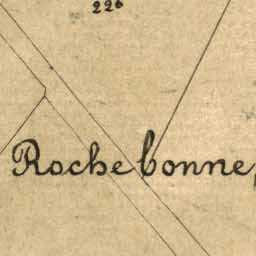 226
Rochebonne